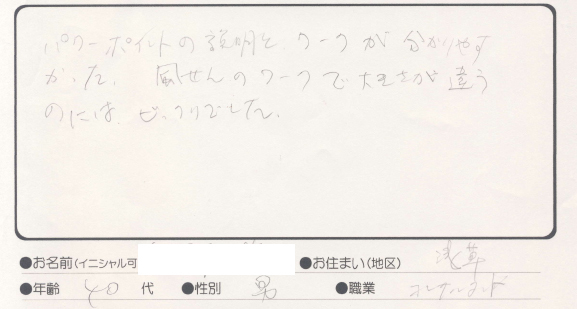 パワーポイントの説明とワークが分かりやす
かった。風せんのワークで大きさが違う
のにはびっくりでした。
●お名前(イニシャル可 ●お住まい(地区) 浅草
●年齢 40 代 ●性別 男 ●職業